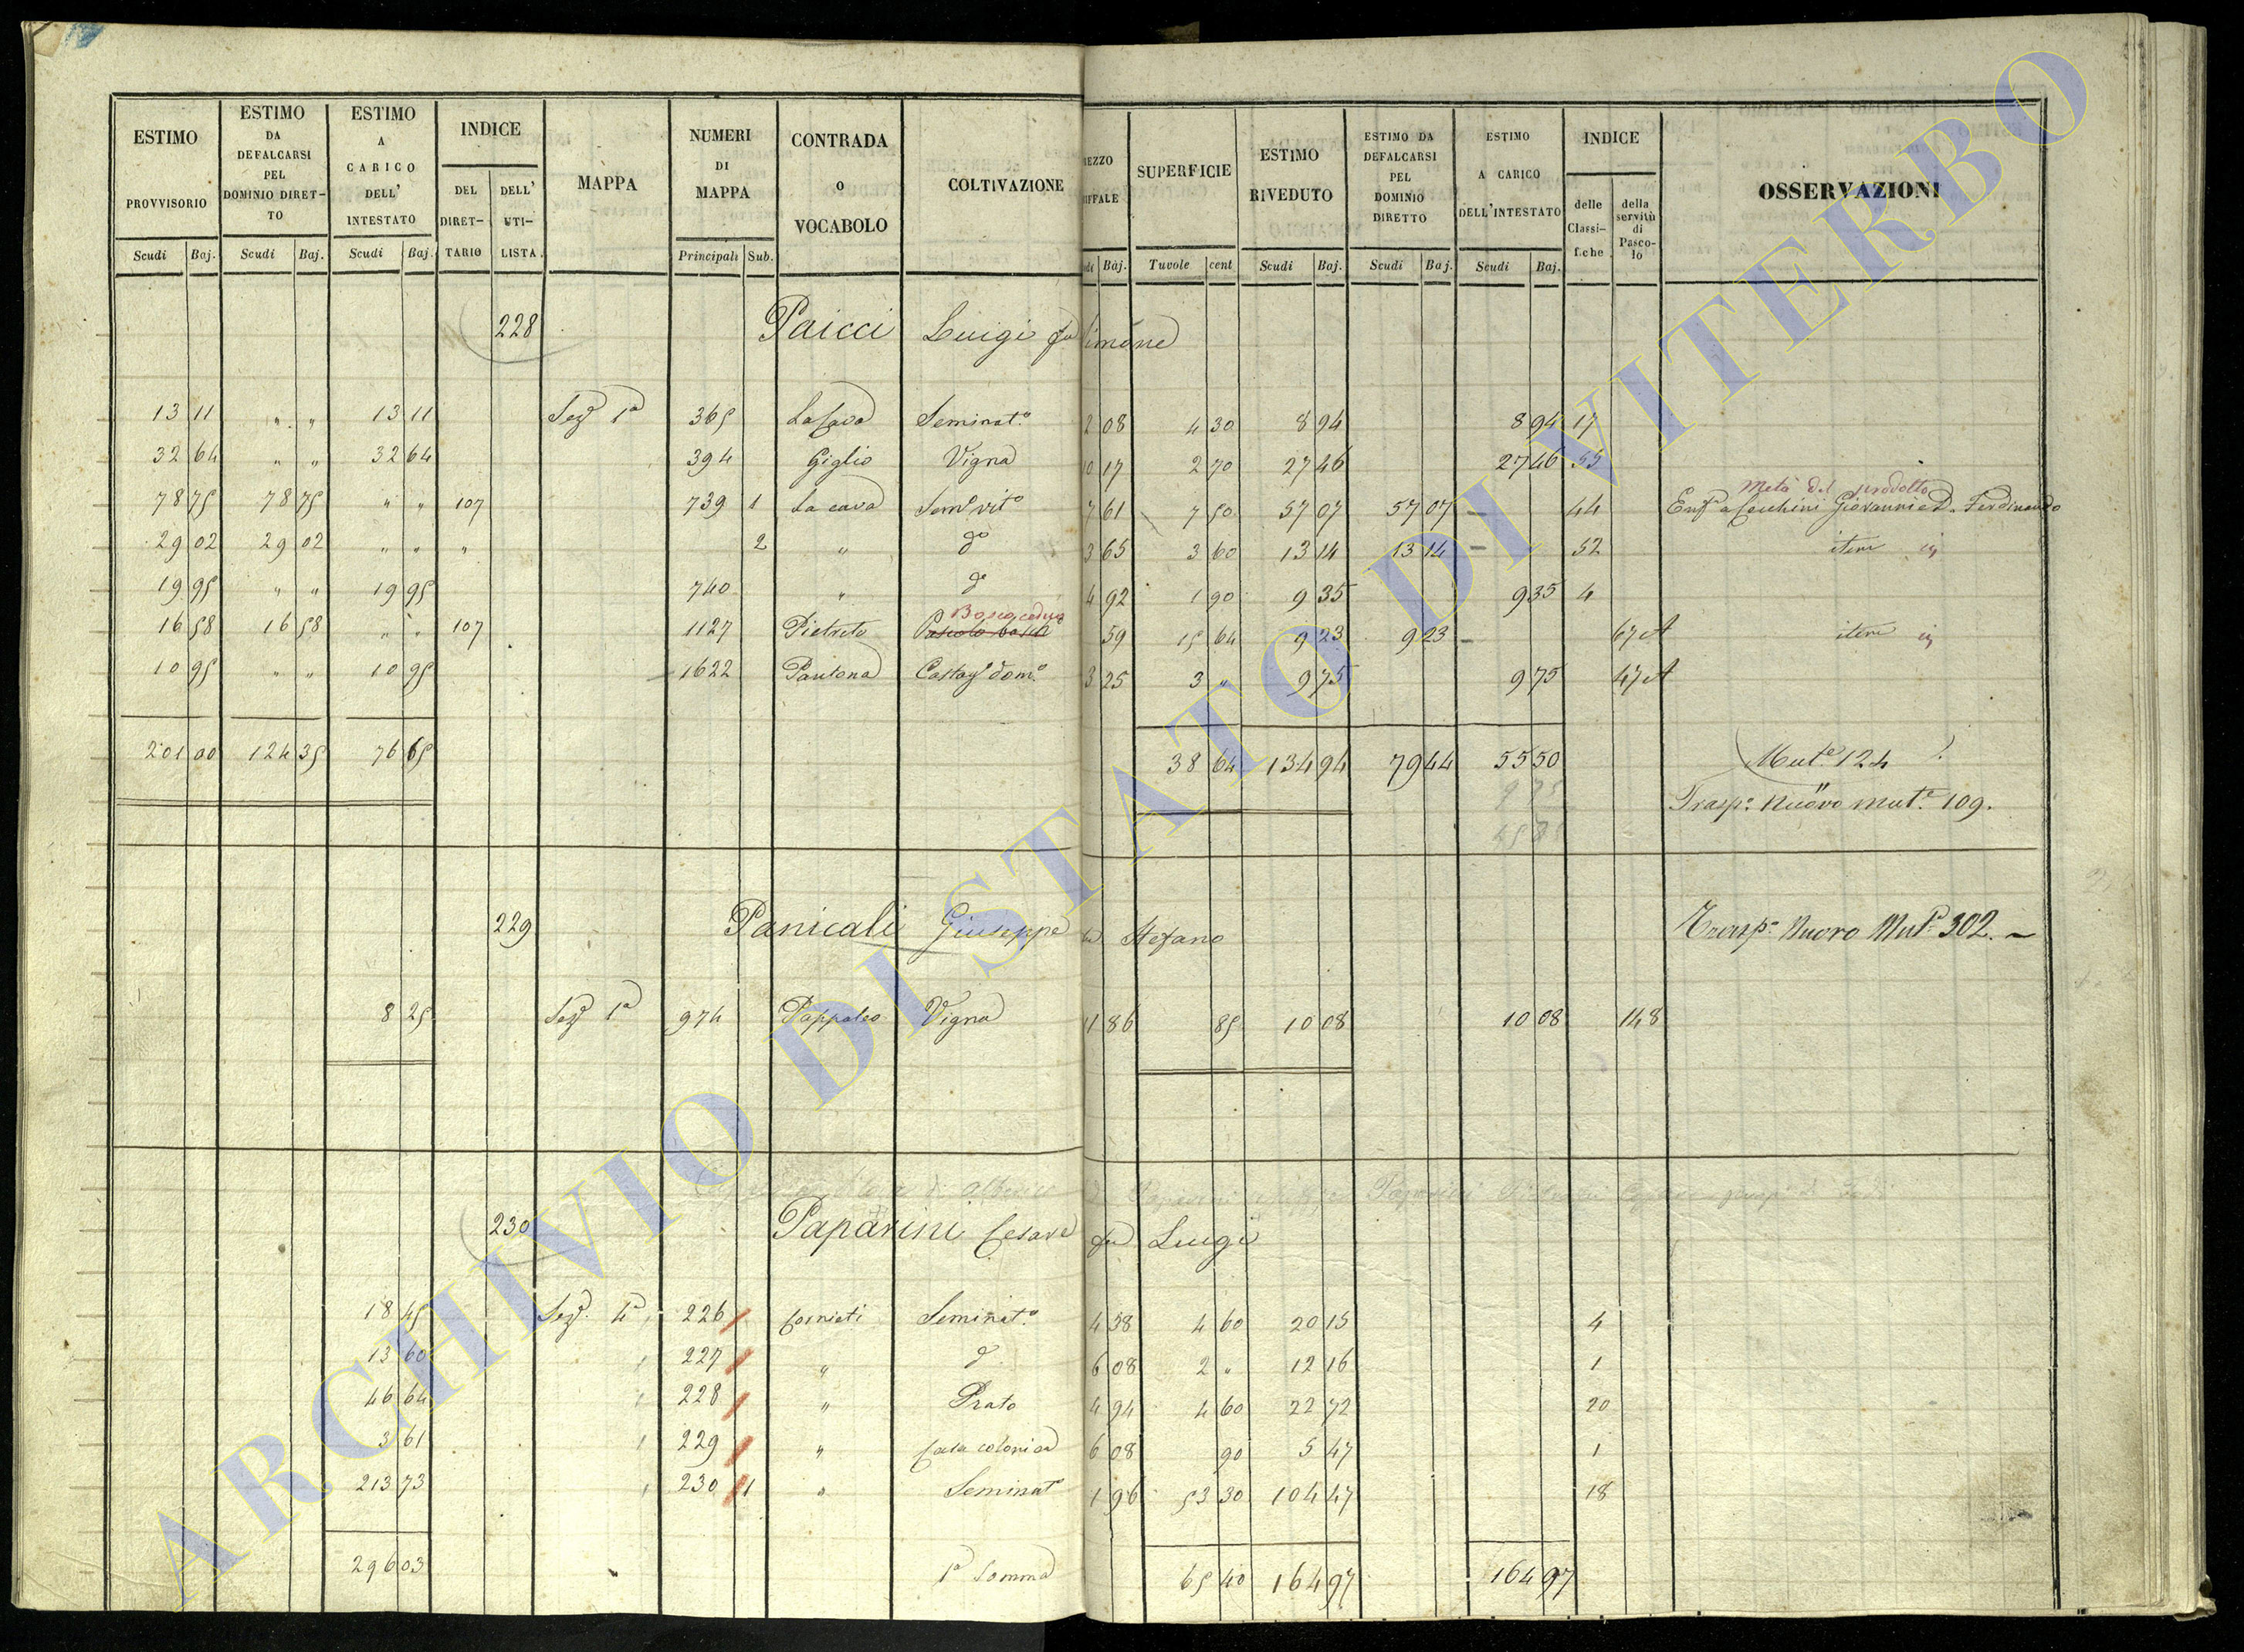 ESTIMO PROVVISORIO Scudi Baj.
ESTIMO DA DEFALCARSI PEL DOMINIO DIRET-TO Scudi Baj.
ESTIMO A CARICO DELL' INTESTATO Scudi Baj.
INDICE DEL DIRET-TARIO DELL' UTI-LISTA.
MAPPA
NUMERI DI MAPPA Principali Sub.
CONTRADA O VOCABOLO
COLTIVAZIONE
EZZO IFFALE di Baj.
SUPERFICIE Tavole cent
ESTIMO RIVEDUTO Scudi Baj.
ESTIMO DA DEFALCARSI PEL DOMINIO DIRETTO Scudi Baj.
ESTIMO A CARICO DELL'INTESTATO Scudi Baj.
INDICE delle Classi-fiche della servitù di Pasco-lo
OSSERVAZIONI
228 Paicci Luigi fu Simone
13 11 " " 13 11 Seze 1a 365 La Cava Seminato 2 08 4 30 8 94 8 94 17
32 64 " " 32 64 394 Giglio Vigna 10 17 2 70 27 46 27 46 53
Metà del prodotto
78 75 78 75 " " 107 739 1 La cava Seme vito 7 61 7 50 57 07 57 07 - 44 Enfa a Cecchini Giovanni e D. Ferdinando
29 02 29 02 " " " 2 " do 3 65 3 60 13 14 13 14 - 52 item
19 95 " " 19 95 740 " do 4 92 1 90 9 35 9 35 4
16 58 16 58 " " 107 1127 Pietreto Pascolo bosco Bosco ceduo 59 15 64 9 23 9 23 - 67 A item
10 95 " " 10 95 1622 Pantana Castago domo 3 25 3 " 9 75 9 75 47 A
201 00 124 35 76 65 38 64 134 94 79 44 55 50 Mute 124
9 75 Traspo Nuovo mute 109.
229 Panicali Giuseppe fu Stefano Traspo Nuovo Muta 302. -
8 25 Seze 1a 974 Pappaleo Vigna 11 86 85 10 08 10 08 148
230 Paparini Cesare fu Luigi
18 45 Seze 4a 226 Cornieti Seminato 4 38 4 60 20 15 4
13 60 227 " do 6 08 2 " 12 16 1
46 64 228 " Prato 4 94 4 60 22 72 20
3 61 229 " Casa colonica 6 08 90 5 47 1
213 73 230 1 " Seminato 1 96 53 30 104 47 18
296 03 1a Somma 65 40 164 97 164 97
ARCHIVIO DI STATO DI VITERBO